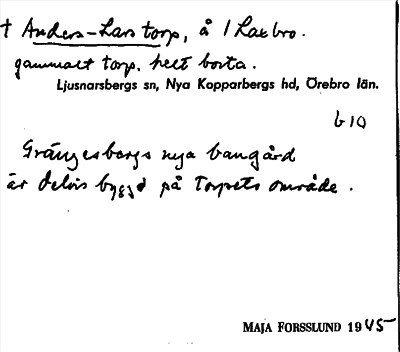 † Anders-Lars torp, å 1 Laxbro.
gammalt torp. helt borta.
Ljusnarsbergs sn, Nya Kopparbergs hd, Örebro län.
b10
Grängesbergs nya bangård
är delvis byggd på torpets område.
MAJA FORSSLUND 1945